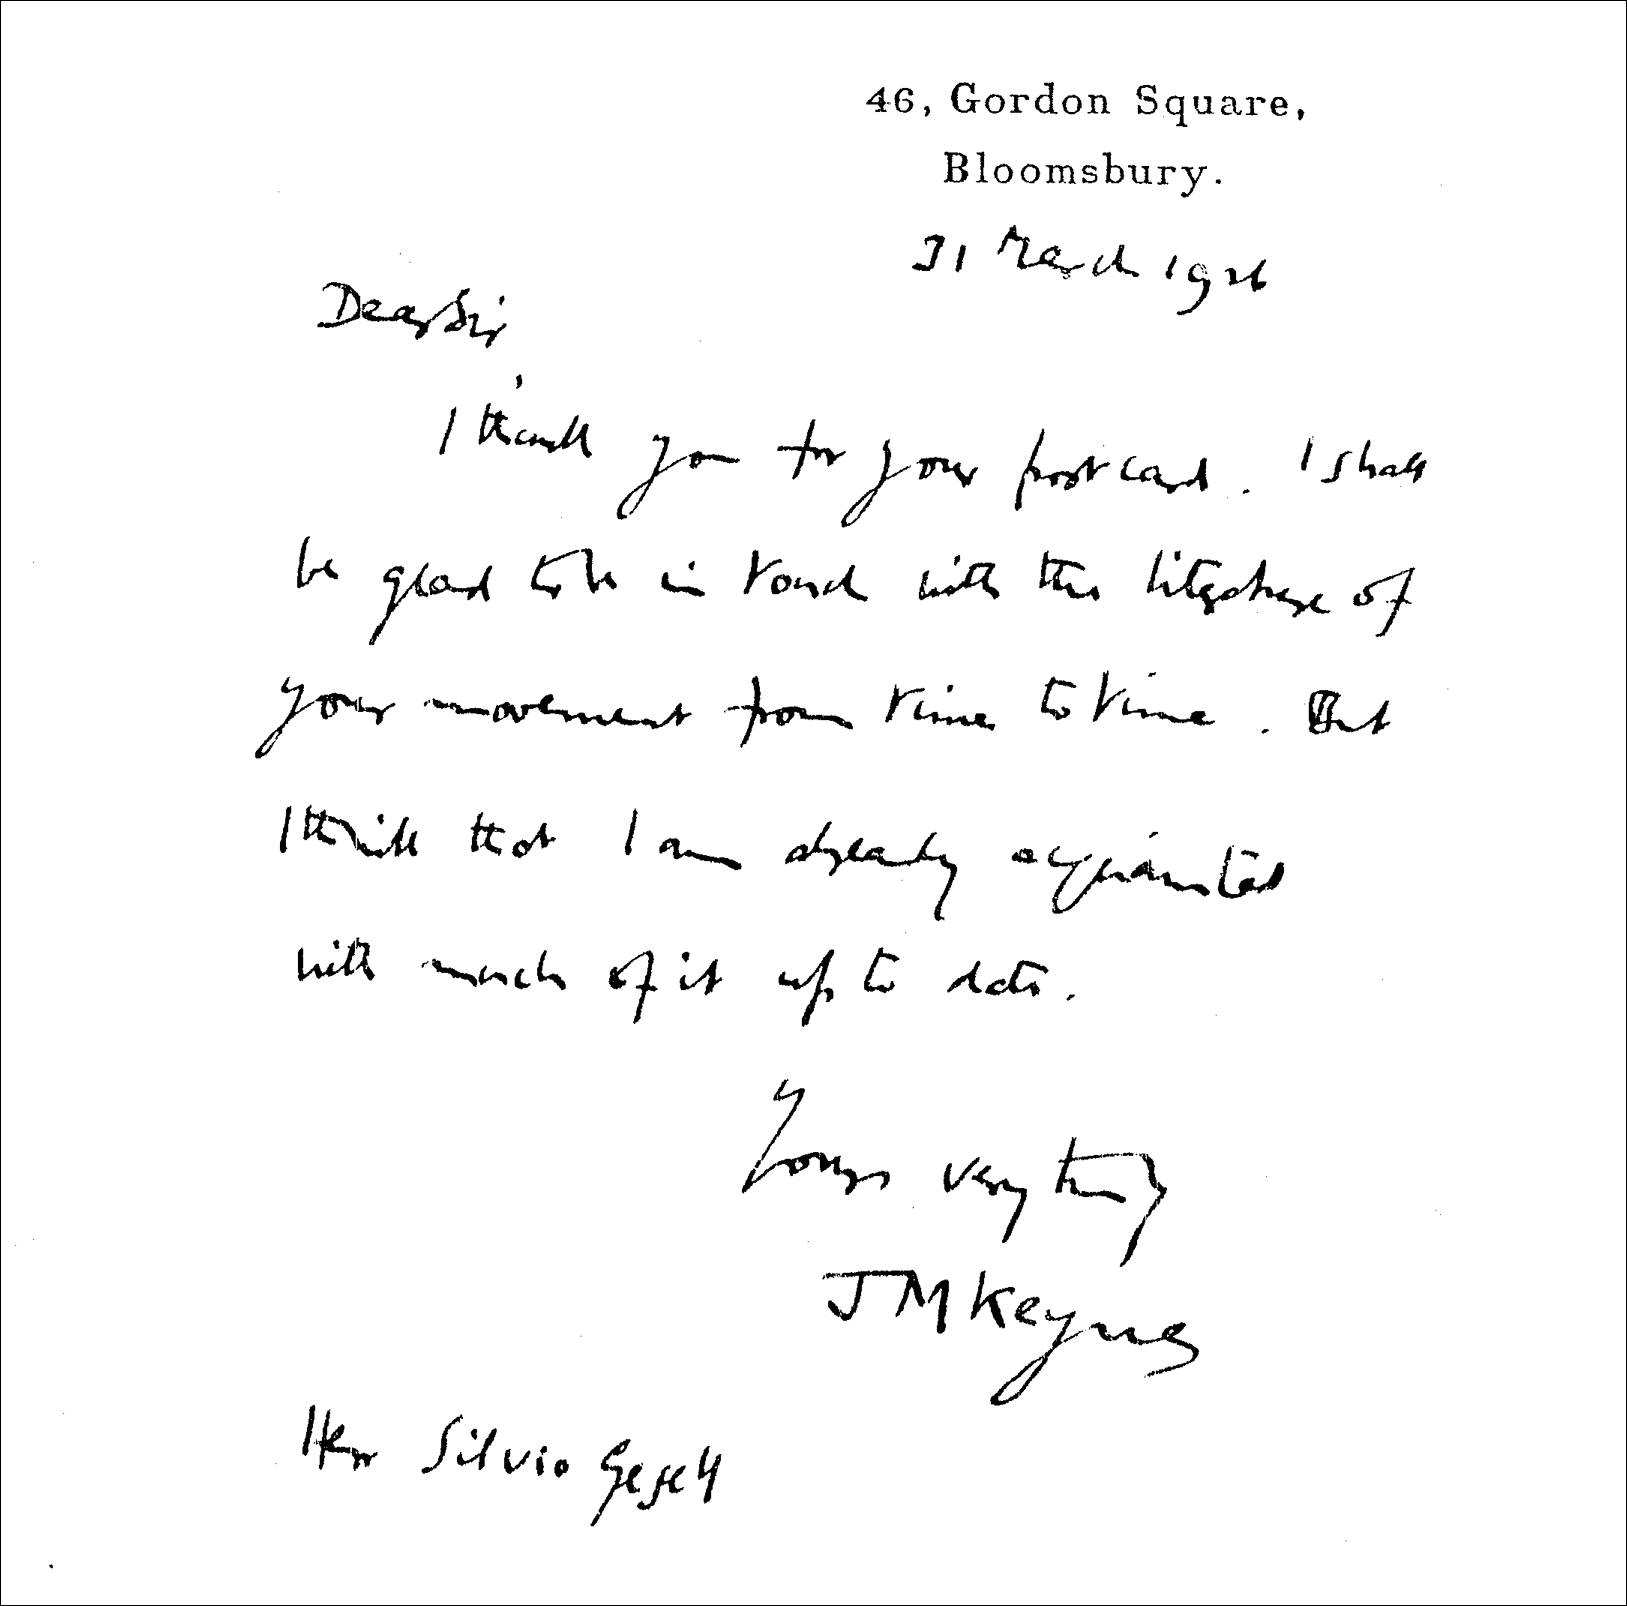 46, Gordon Square,
Bloomsbury.
31 March 1926
Dear Sir
I thank you for your postcard. I shall
be glad to be in touch with the literature of
your movement from time to time. But
I think that I am already acquainted
with much of it up to date.
Yours very truly
JMKeynes
Herr Silvio Gesell